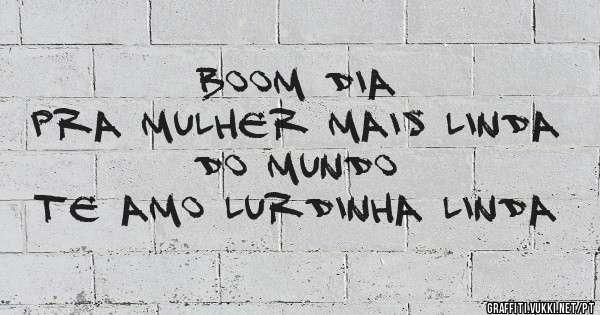 BOOM DIA
PRA MULHER MAIS LINDA
DO MUNDO
TE AMO LURDINHA LINDA
GRAFFITI.VUKKI.NET/PT